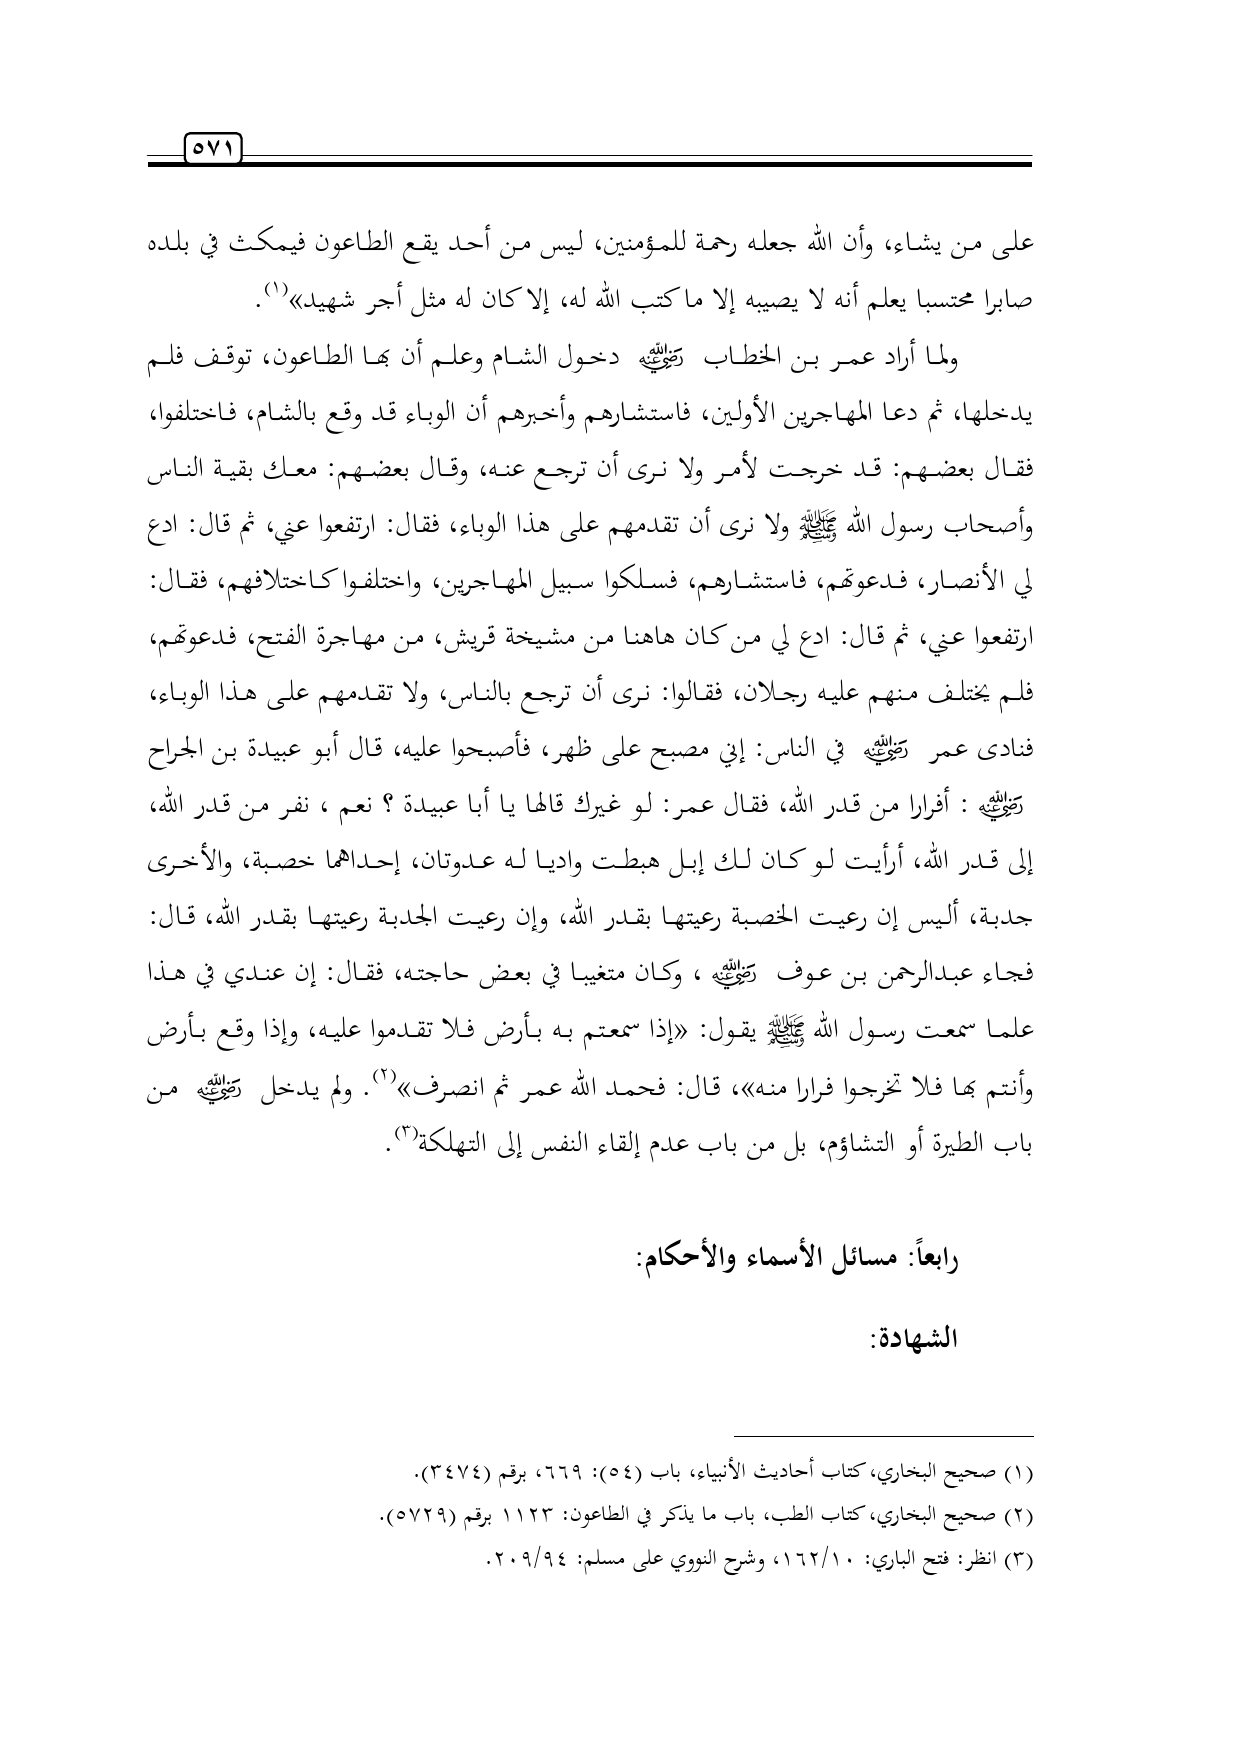 ٥٧١
على من يشاء، وأن الله جعله رحمة للمؤمنين، ليس من أحد يقع الطاعون فيمكث في بلده
صابرا محتسبا يعلم أنه لا يصيبه إلا ما كتب الله له، إلا كان له مثل أجر شهيد»(١).
ولما أراد عمر بن الخطاب رضي الله عنه دخول الشام وعلم أن بها الطاعون، توقف فلم
يدخلها، ثم دعا المهاجرين الأولين، فاستشارهم وأخبرهم أن الوباء قد وقع بالشام، فاختلفوا،
فقال بعضهم: قد خرجت لأمر ولا نرى أن ترجع عنه، وقال بعضهم: معك بقية الناس
وأصحاب رسول الله ﷺ ولا نرى أن تقدمهم على هذا الوباء، فقال: ارتفعوا عني، ثم قال: ادع
لي الأنصار، فدعوتهم، فاستشارهم، فسلكوا سبيل المهاجرين، واختلفوا كاختلافهم، فقال:
ارتفعوا عني، ثم قال: ادع لي من كان هاهنا من مشيخة قريش، من مهاجرة الفتح، فدعوتهم،
فلم يختلف منهم عليه رجلان، فقالوا: نرى أن ترجع بالناس، ولا تقدمهم على هذا الوباء،
فنادى عمر رضي الله عنه في الناس: إني مصبح على ظهر، فأصبحوا عليه، قال أبو عبيدة بن الجراح
رضي الله عنه : أفرارا من قدر الله، فقال عمر: لو غيرك قالها يا أبا عبيدة ؟ نعم ، نفر من قدر الله،
إلى قدر الله، أرأيت لو كان لك إبل هبطت واديا له عدوتان، إحداهما خصبة، والأخرى
جدبة، أليس إن رعيت الخصبة رعيتها بقدر الله، وإن رعيت الجدبة رعيتها بقدر الله، قال:
فجاء عبدالرحمن بن عوف رضي الله عنه ، وكان متغيبا في بعض حاجته، فقال: إن عندي في هذا
علما سمعت رسول الله ﷺ يقول: «إذا سمعتم به بأرض فلا تقدموا عليه، وإذا وقع بأرض
وأنتم بها فلا تخرجوا فرارا منه»، قال: فحمد الله عمر ثم انصرف»(٢). ولم يدخل رضي الله عنه من
باب الطيرة أو التشاؤم، بل من باب عدم إلقاء النفس إلى التهلكة(٣).
رابعاً: مسائل الأسماء والأحكام:
الشهادة:
(١) صحيح البخاري، كتاب أحاديث الأنبياء، باب (٥٤): ٦٦٩، برقم (٣٤٧٤).
(٢) صحيح البخاري، كتاب الطب، باب ما يذكر في الطاعون: ١١٢٣ برقم (٥٧٢٩).
(٣) انظر: فتح الباري: ١٦٢/١٠، وشرح النووي على مسلم: ٢٠٩/٩٤.